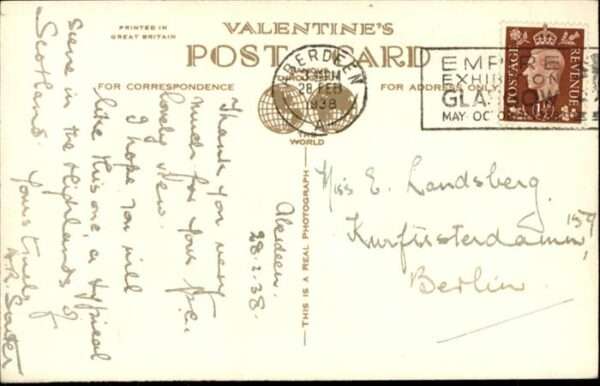 PRINTED IN
GREAT BRITAIN
VALENTINE'S
POST CARD
FOR CORRESPONDENCE
FOR ADDRESS ONLY
ABERDEEN
28 FEB
1938
A
THE
WORLD
EMPIRE
EXHIBITION
GLASGOW
MAY-OCT
POSTAGE
REVENUE
THIS IS A REAL PHOTOGRAPH
Aberdeen.
28.2.38.
Thank you very
much for your p.c.
lovely view.
I hope you will
like this one, a typical
scene in the Highlands of
Scotland. Yours truly
Miss E. Landsberg,
Kurfürsterdamm 159
Berlin.